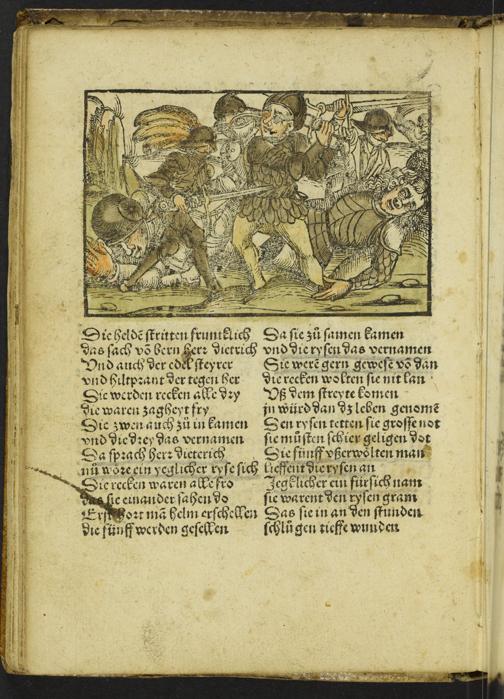 Die heldē stritten fruntklich
das sach vō bern herr dietrich
Vnd auch der edel steyrer
vnd hiltprant der tegen her
Sie werden recken alle dry
die waren zagheyt fry
Sie zwen auch zů in kamen
vnd die drey das vernamen
Da sprach herr dieterich
nů wōre ein yeglicher ryse sich
Die recken waren alle fro
das sie einander sahen do
Erst hort mā helm erschellen
die fünff werden gesellen
Da sie zů samen kamen
vnd die rysen das vernamen
Sie werē gern gewesē vō dan
die recken wolten sie nit lan
Vß dem streyte komen
jn würd dan dz leben genomē
Den rysen tetten sie grosse not
sie müsten schier geligen dot
Die fünff vßerwölten man
lieffent die rysen an
Jegklicher ein für sich nam
sie warent den rysen gram
Das sie in an den stunden
schlůgen tieffe wunden